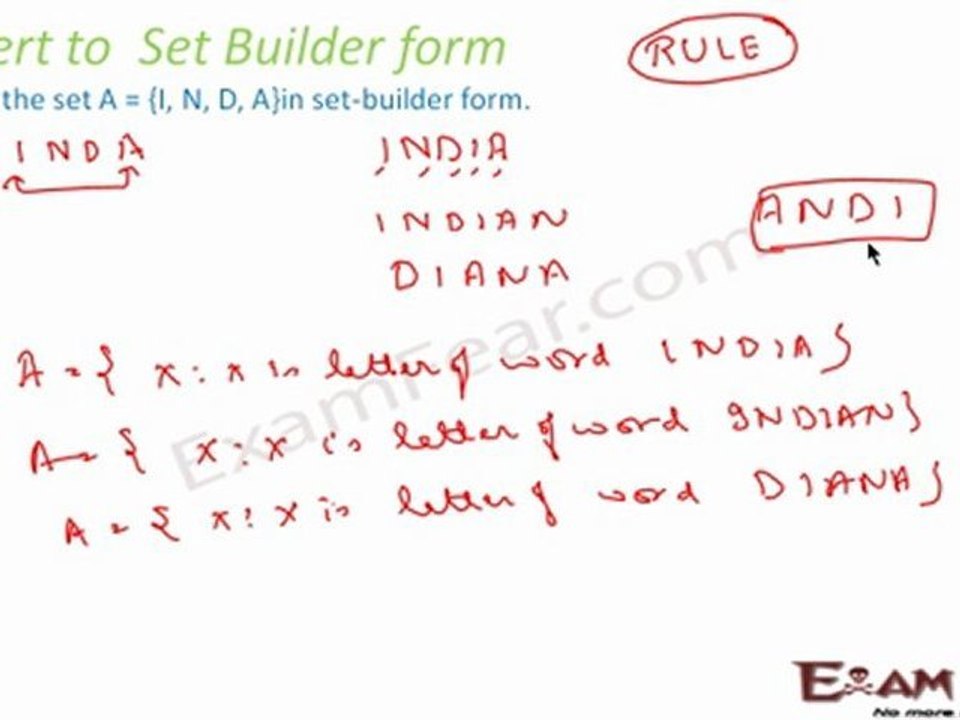 ert to Set Builder form
RULE
the set A = {I, N, D, A}in set-builder form.
I N D A
INDIA
ANDI
INDIAN
DIANA
ExamFear.com
A = { x : x is letter of word INDIA}
A = { x : x is letter of word INDIAN}
A = { x : x is letter of word DIANA}
EXAM
No more